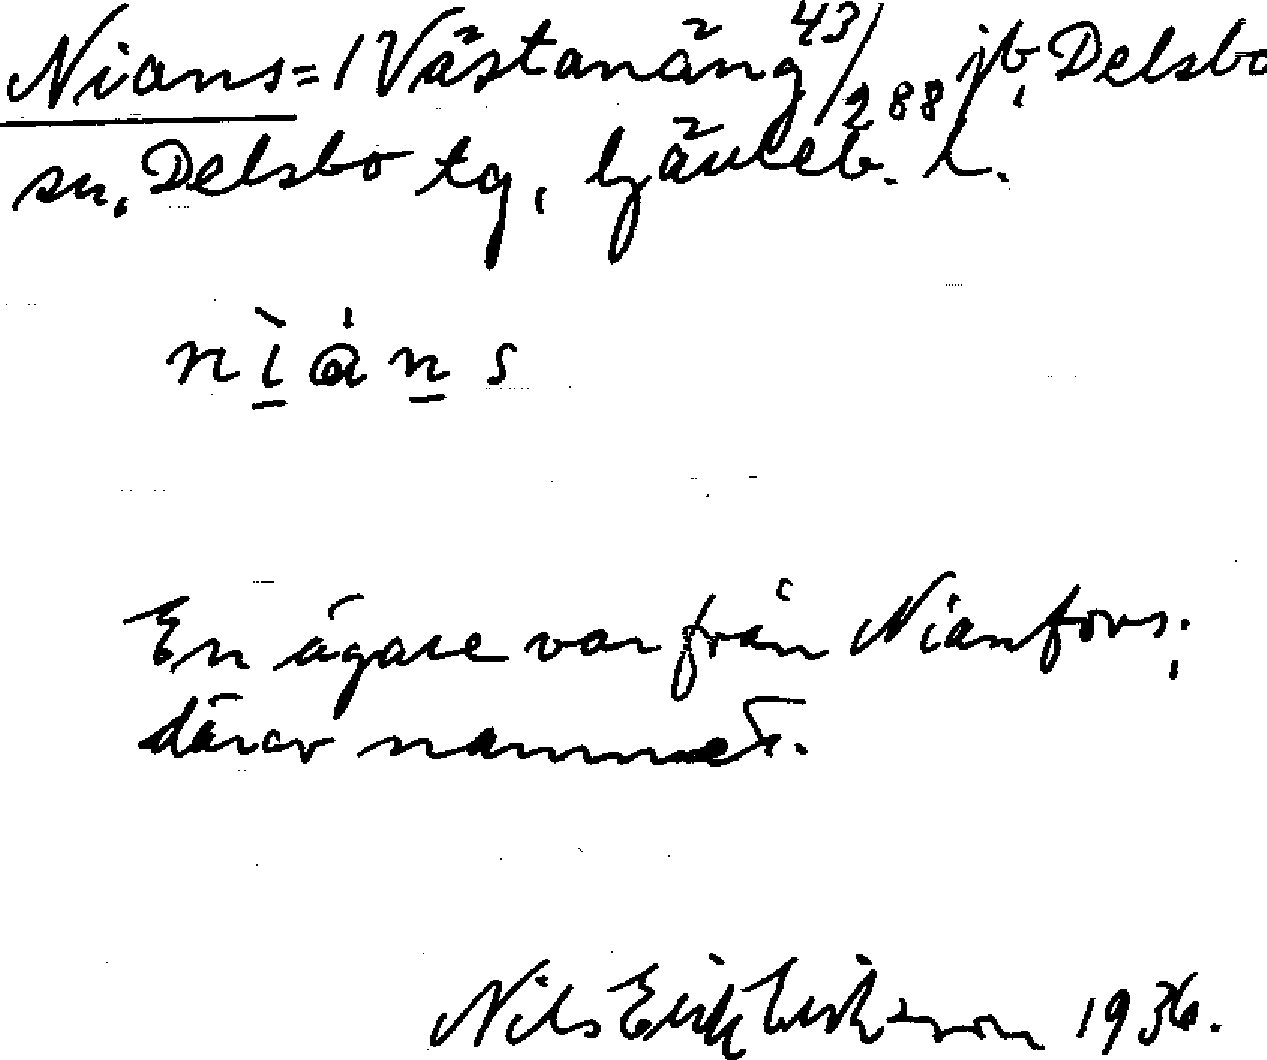 Nians = 1 Västanäng 43/288 jb, Delsbo
sn, Delsbo tg, Gävleb. l.
nìán̲s
En ägare var från Nianfors,
därav namnet.
Nils Erik Eriksson 1936.